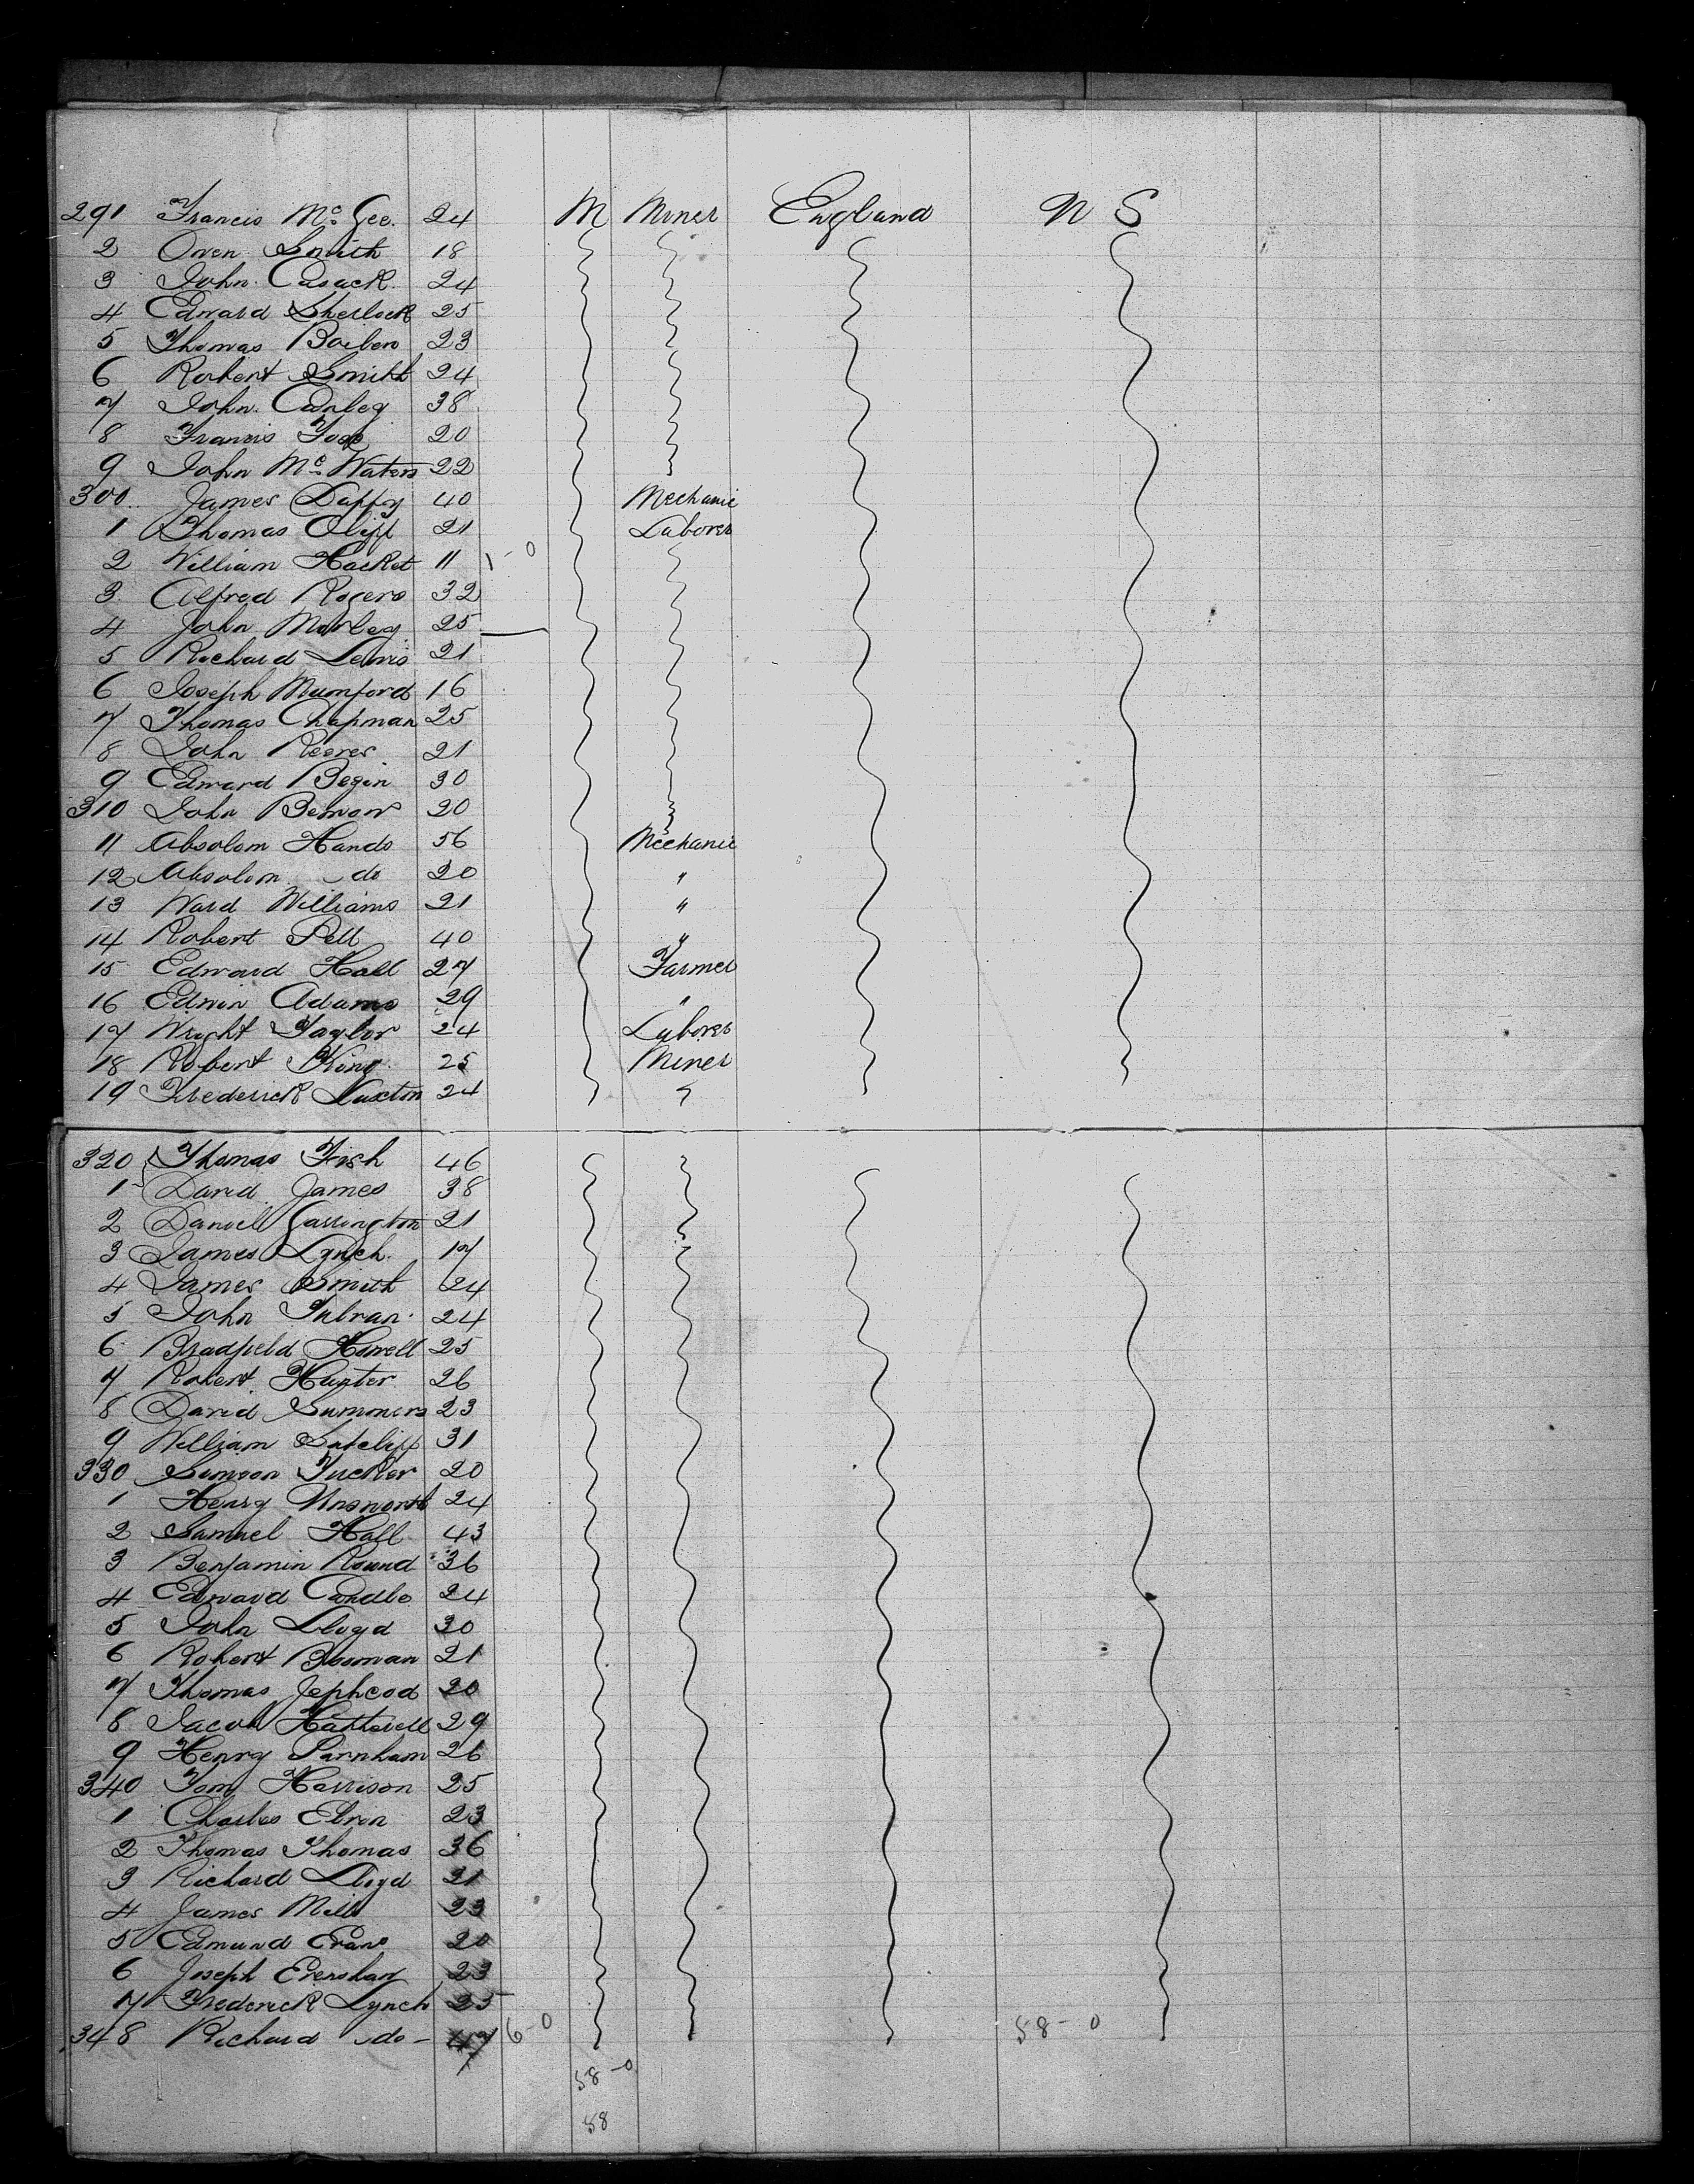 291 Francis Mc Gee. 24 M Miner England N S
2 Owen Smith 18
3 John Casack 24
4 Edward Sherlock 25
5 Thomas 23
6 Robert Smith 24
7 John 38
8 Francis 20
9 John Mc Waters 22
300 James Duffy 40 Mechanic
1 Thomas Oliff 21 Laborer
2 William Hacket 11 1-0
3 Alfred Rogers 32
4 John Morley 25
5 Richard Lewis 21
6 Joseph Mumford 16
7 Thomas Chapman 25
8 John Reeves 21
9 Edward Begin 30
310 John 20
11 Absolom Hands 56 Mechanic
12 Absolom do 20 "
13 Ward Williams 21 "
14 Robert Pell 40 "
15 Edward Hall 27 Farmer
16 Edwin Adams 29 "
17 Wright Taylor 24 Laborer
18 Robert King 25 Miner
19 Frederick Luxton 24
320 Thomas Fish 46
1 David James 38
2 Daniel Garrington 21
3 James Lynch 17
4 James Smith 24
5 John 24
6 Bradfield Howell 25
7 Robert Hunter 26
8 David Summers 23
9 William Sutcliff 31
330 Simeon Tucker 20
1 Henry Unsworth 24
2 Samuel Hall 43
3 Benjamin Round 36
4 Edward Condle 24
5 John Lloyd 30
6 Robert Bosman 21
7 Thomas Jephcod 20
8 Jacob Hatterell 29
9 Henry Parnham 26
340 Tom Harrison 25
1 Charles 23
2 Thomas Thomas 36
3 Richard Lloyd 21
4 James Mills 23
5 Edmund Evans 20
6 Joseph Evershay 23
7 Frederick Lynch 25
348 Richard do - 47 6-0 58-0
58-0
58